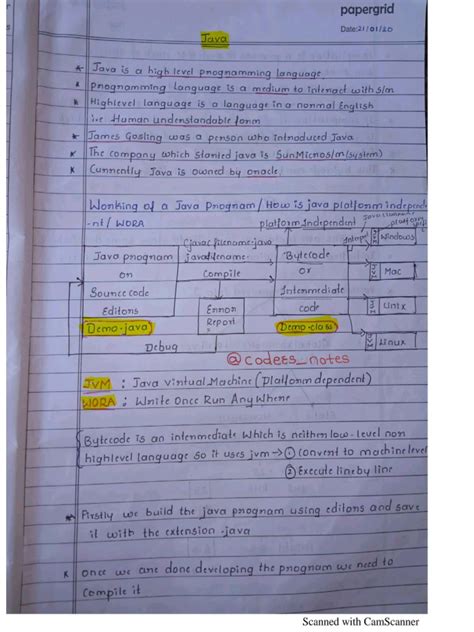 papergrid
Date: 21/01/20
Java
Java is a high level programming language.
programming Language is a medium to interact with s/m
Highlevel language is a language in a normal English
i.e Human understandable form
James Gosling was a person who introduced Java
The company which started java is SunMicros/m (system)
Currently Java is owned by oracle.
Working of a Java Program / How is java platform independe-
-nt / WORA
platform Independent
Javac filename.java
javafilename.
Java program
or
Source code
Editors
Demo.java
Compile
Error
Report
Debug
Bytecode
or
Intermediate
code
Demo.class
Windows
Mac
Unix
Linux
@codees_notes
JVM : Java Virtual Machine (Platform dependent)
WORA : Write Once Run Any Where
Bytecode is an intermediate which is neither low-level nor
highlevel language so it uses jvm → ① Convert to machine level
② Execute line by line
Firstly we build the java program using editors and save
it with the extension .java
Once we are done developing the program we need to
compile it
Scanned with CamScanner